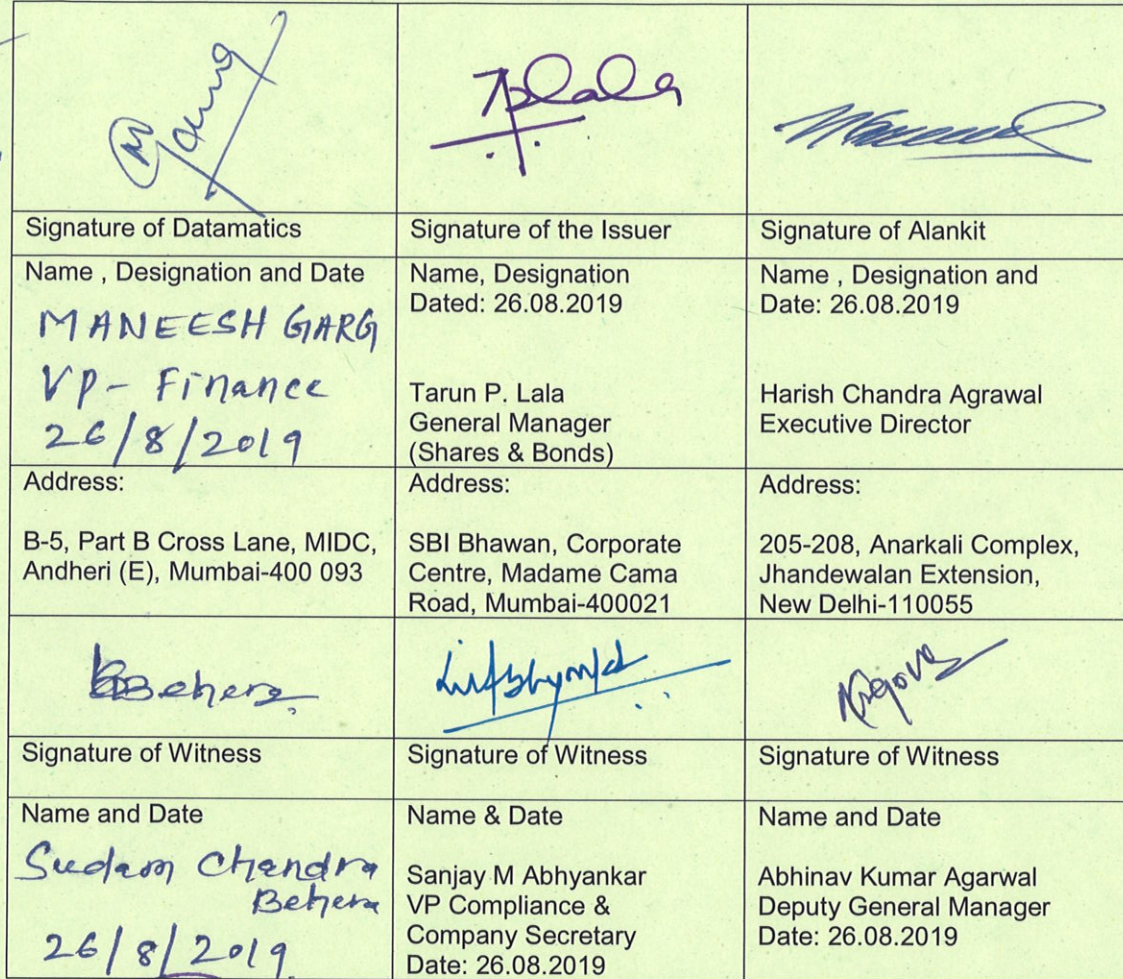 Signature of Datamatics
Signature of the Issuer
Signature of Alankit
Name , Designation and Date
MANEESH GARG
VP- Finance
26/8/2019
Name, Designation
Dated: 26.08.2019
Tarun P. Lala
General Manager
(Shares & Bonds)
Name , Designation and
Date: 26.08.2019
Harish Chandra Agrawal
Executive Director
Address:
B-5, Part B Cross Lane, MIDC,
Andheri (E), Mumbai-400 093
Address:
SBI Bhawan, Corporate
Centre, Madame Cama
Road, Mumbai-400021
Address:
205-208, Anarkali Complex,
Jhandewalan Extension,
New Delhi-110055
Signature of Witness
Signature of Witness
Signature of Witness
Name and Date
Sudam Chandra
Behera
26/8/2019
Name & Date
Sanjay M Abhyankar
VP Compliance &
Company Secretary
Date: 26.08.2019
Name and Date
Abhinav Kumar Agarwal
Deputy General Manager
Date: 26.08.2019